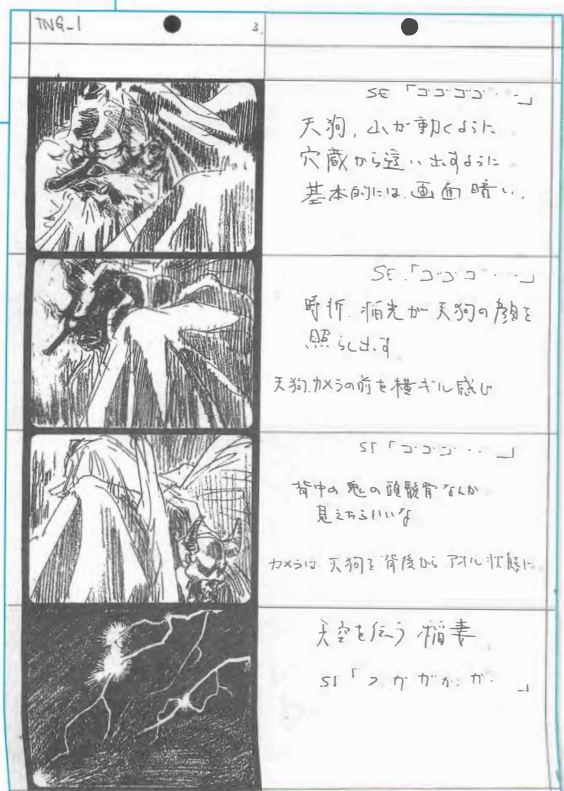 TNG_1
3.
SE「ゴゴゴゴ・・」
天狗、山が動くように
穴蔵から這い出すように
基本的には、画面暗い。
SE.「ゴゴゴ・・・」
時折、稲光が天狗の顔を
照らし出す
天狗、カメラの前を横ギル感じ
SE「ゴゴゴ・・・」
背中の鬼の頭骸骨なんか
見えたらいいな
カメラは天狗を背後からアオル状態に
天空を伝う稲妻
SE「 ガガガ.